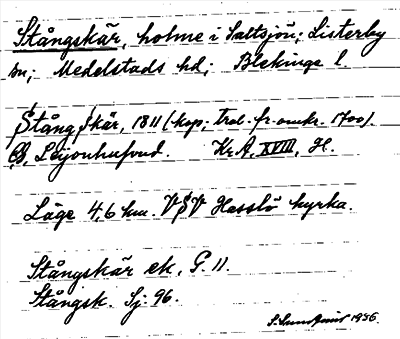 Stångskär, holme i Saltsjön; Listerby
sn; Medelstads hd; Blekinge l.
Stång skär, 1811 (kop; trol. fr. omkr. 1700).
CG. Leijonhufvud. Kr.A. XVIII, H.
Läge 4,6 km. VSV Hasslö kyrka.
Stångskär ek. G. 11.
Stångsk. Sj. 96.
S. Sundqvist 1936.